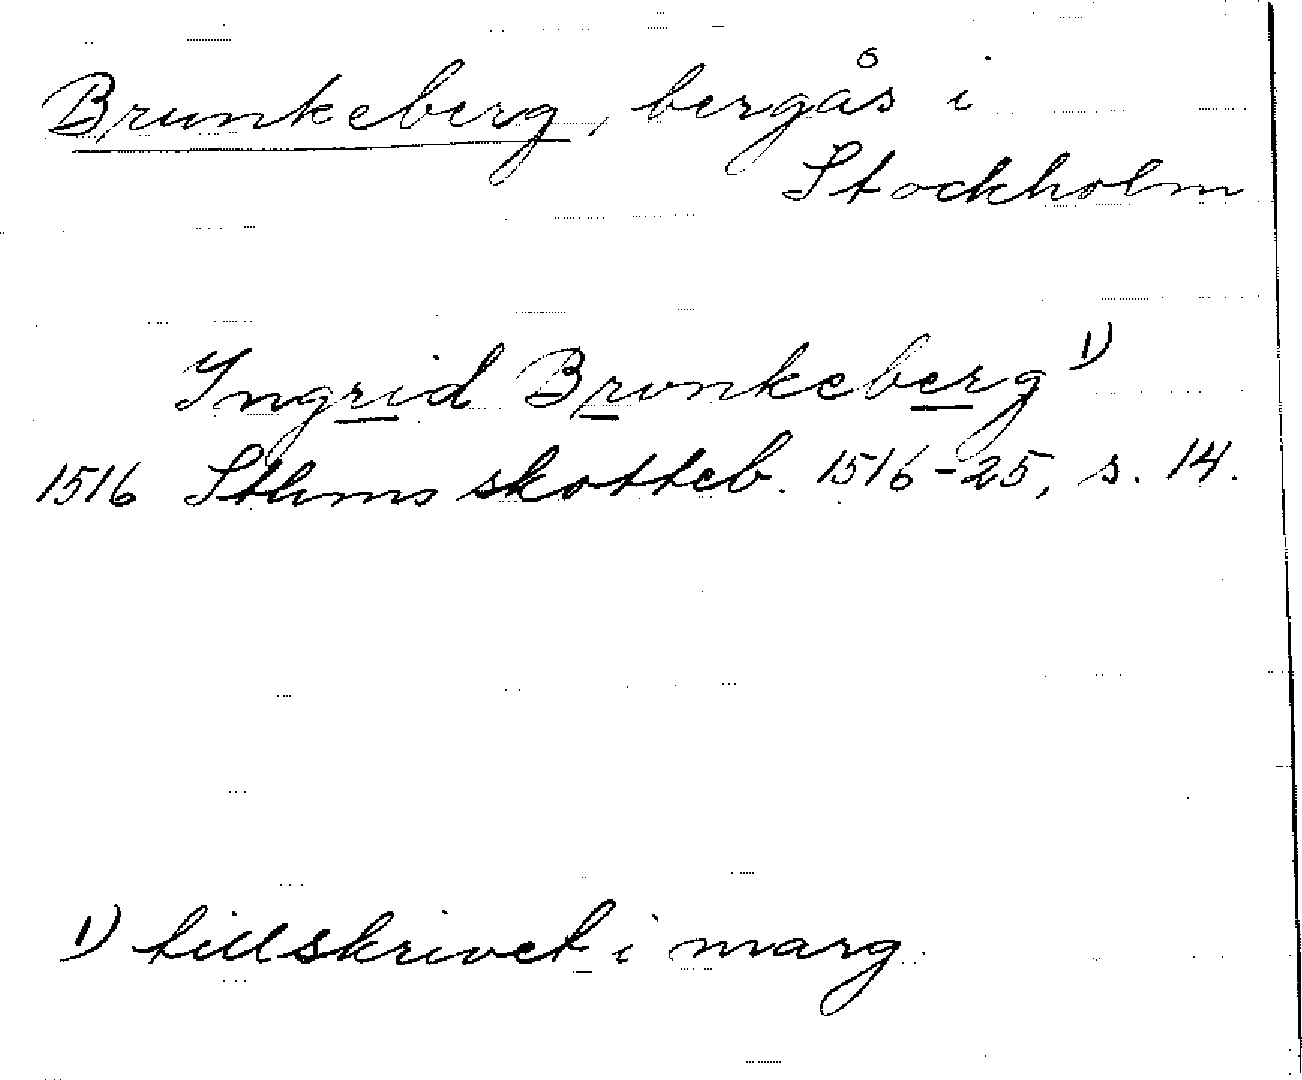 Brunkeberg, bergås i
Stockholm
Ingrid Bronkeberg 1)
1516 Sthms skotteb. 1516-25, s. 14.
1) tillskrivet i marg.